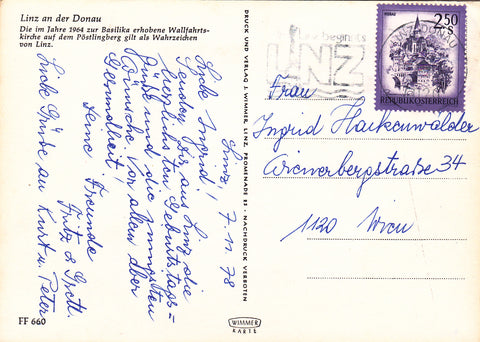 Linz an der Donau
Die im Jahre 1964 zur Basilika erhobene Wallfahrts-
kirche auf dem Pöstlingberg gilt als Wahrzeichen
von Linz.
Linz, 7.11.78
Liebe Ingrid!
Sende Dir aus Linz die
herzlichsten Geburtstags=
grüße und die innigsten
Wünsche vor allem aber
Gesundheit!
Deine Freunde
Fritz & Gretl.
Liebe Grüße an Kurt u. Peter
FF 660
DRUCK UND VERLAG J. WIMMER, LINZ, PROMENADE 23 - NACHDRUCK VERBOTEN
WIMMER
KARTE
beginnt
LINZ
LINZ/DONAU
2.50
S
REPUBLIK ÖSTERREICH
Frau
Ingrid Hackenwalder
Wienerbergstraße 34
1120 Wien